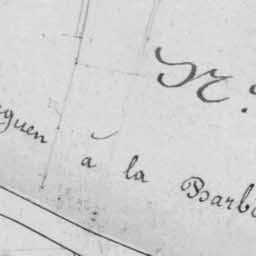 N.
guen à la Barb